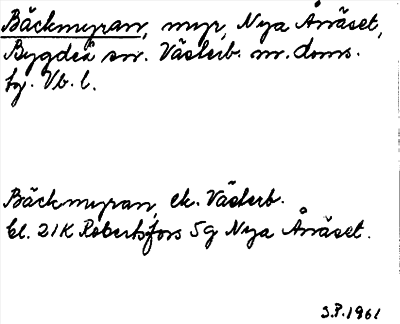 Bäckmyran, myr, Nya Ånäset,
Bygdeå sn. Västerb. m. doms.
bg. Vb. l.
Bäckmyran, ek. Västerb.
bl. 21K Robertsfors 5g Nya Ånäset.
S.P. 1961